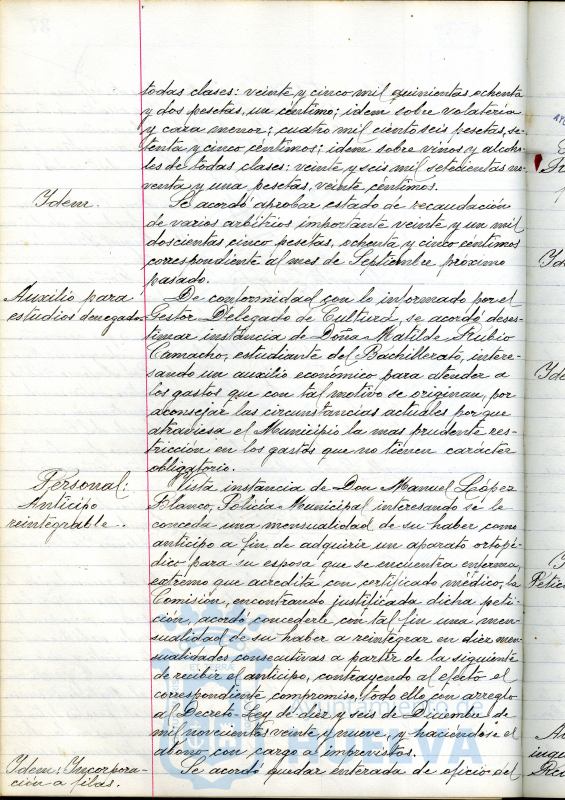 todas clases: veinte y cinco mil quinientas ochenta
y dos pesetas, un céntimo; idem sobre volatería
y caza menor; cuatro mil ciento seis pesetas, se-
tenta y cinco céntimos; idem sobre vinos y alcoho-
les de todas clases: veinte y seis mil setecientas no-
venta y una pesetas, veinte céntimos.
Idem.
Se acordó aprobar estado de recaudación
de varios arbitrios importante veinte y un mil
doscientas cinco pesetas, ochenta y cinco céntimos
correspondiente al mes de Septiembre próximo
pasado.
Auxilio para
estudios denegado
De conformidad con lo informado por el
Gestor Delegado de Cultura, se acordó deses-
timar instancia de Doña Matilde Rubio
Camacho, estudiante del Bachillerato, intere-
sando un auxilio económico para atender a
los gastos que con tal motivo se originan, por
aconsejar las circunstancias actuales por que
atraviesa el Municipio la mas prudente res-
tricción en los gastos que no tienen carácter
obligatorio.
Personal:
Anticipo
reintegrable.
Vista instancia de Don Manuel López
Blanco, Policía Municipal interesando se le
conceda una mensualidad de su haber como
anticipo a fin de adquirir un aparato ortopé-
dico para su esposa que se encuentra enferma,
extremo que acredita con certificado médico, la
Comisión, encontrando justificada dicha peti-
ción, acordó concederle con tal fin una men-
sualidad de su haber a reintegrar en diez men-
sualidades consecutivas a partir de la siguiente
de recibir el anticipo, contrayendo al efecto el
correspondiente compromiso, todo ello con arreglo
al Decreto Ley de diez y seis de Diciembre de
mil novecientos veinte y nueve, y haciéndose el
abono con cargo a imprevistos.
Idem: Incorpora-
ción a filas.
Se acordó quedar enterada de oficio del
Ayuntamiento de
HUELVA